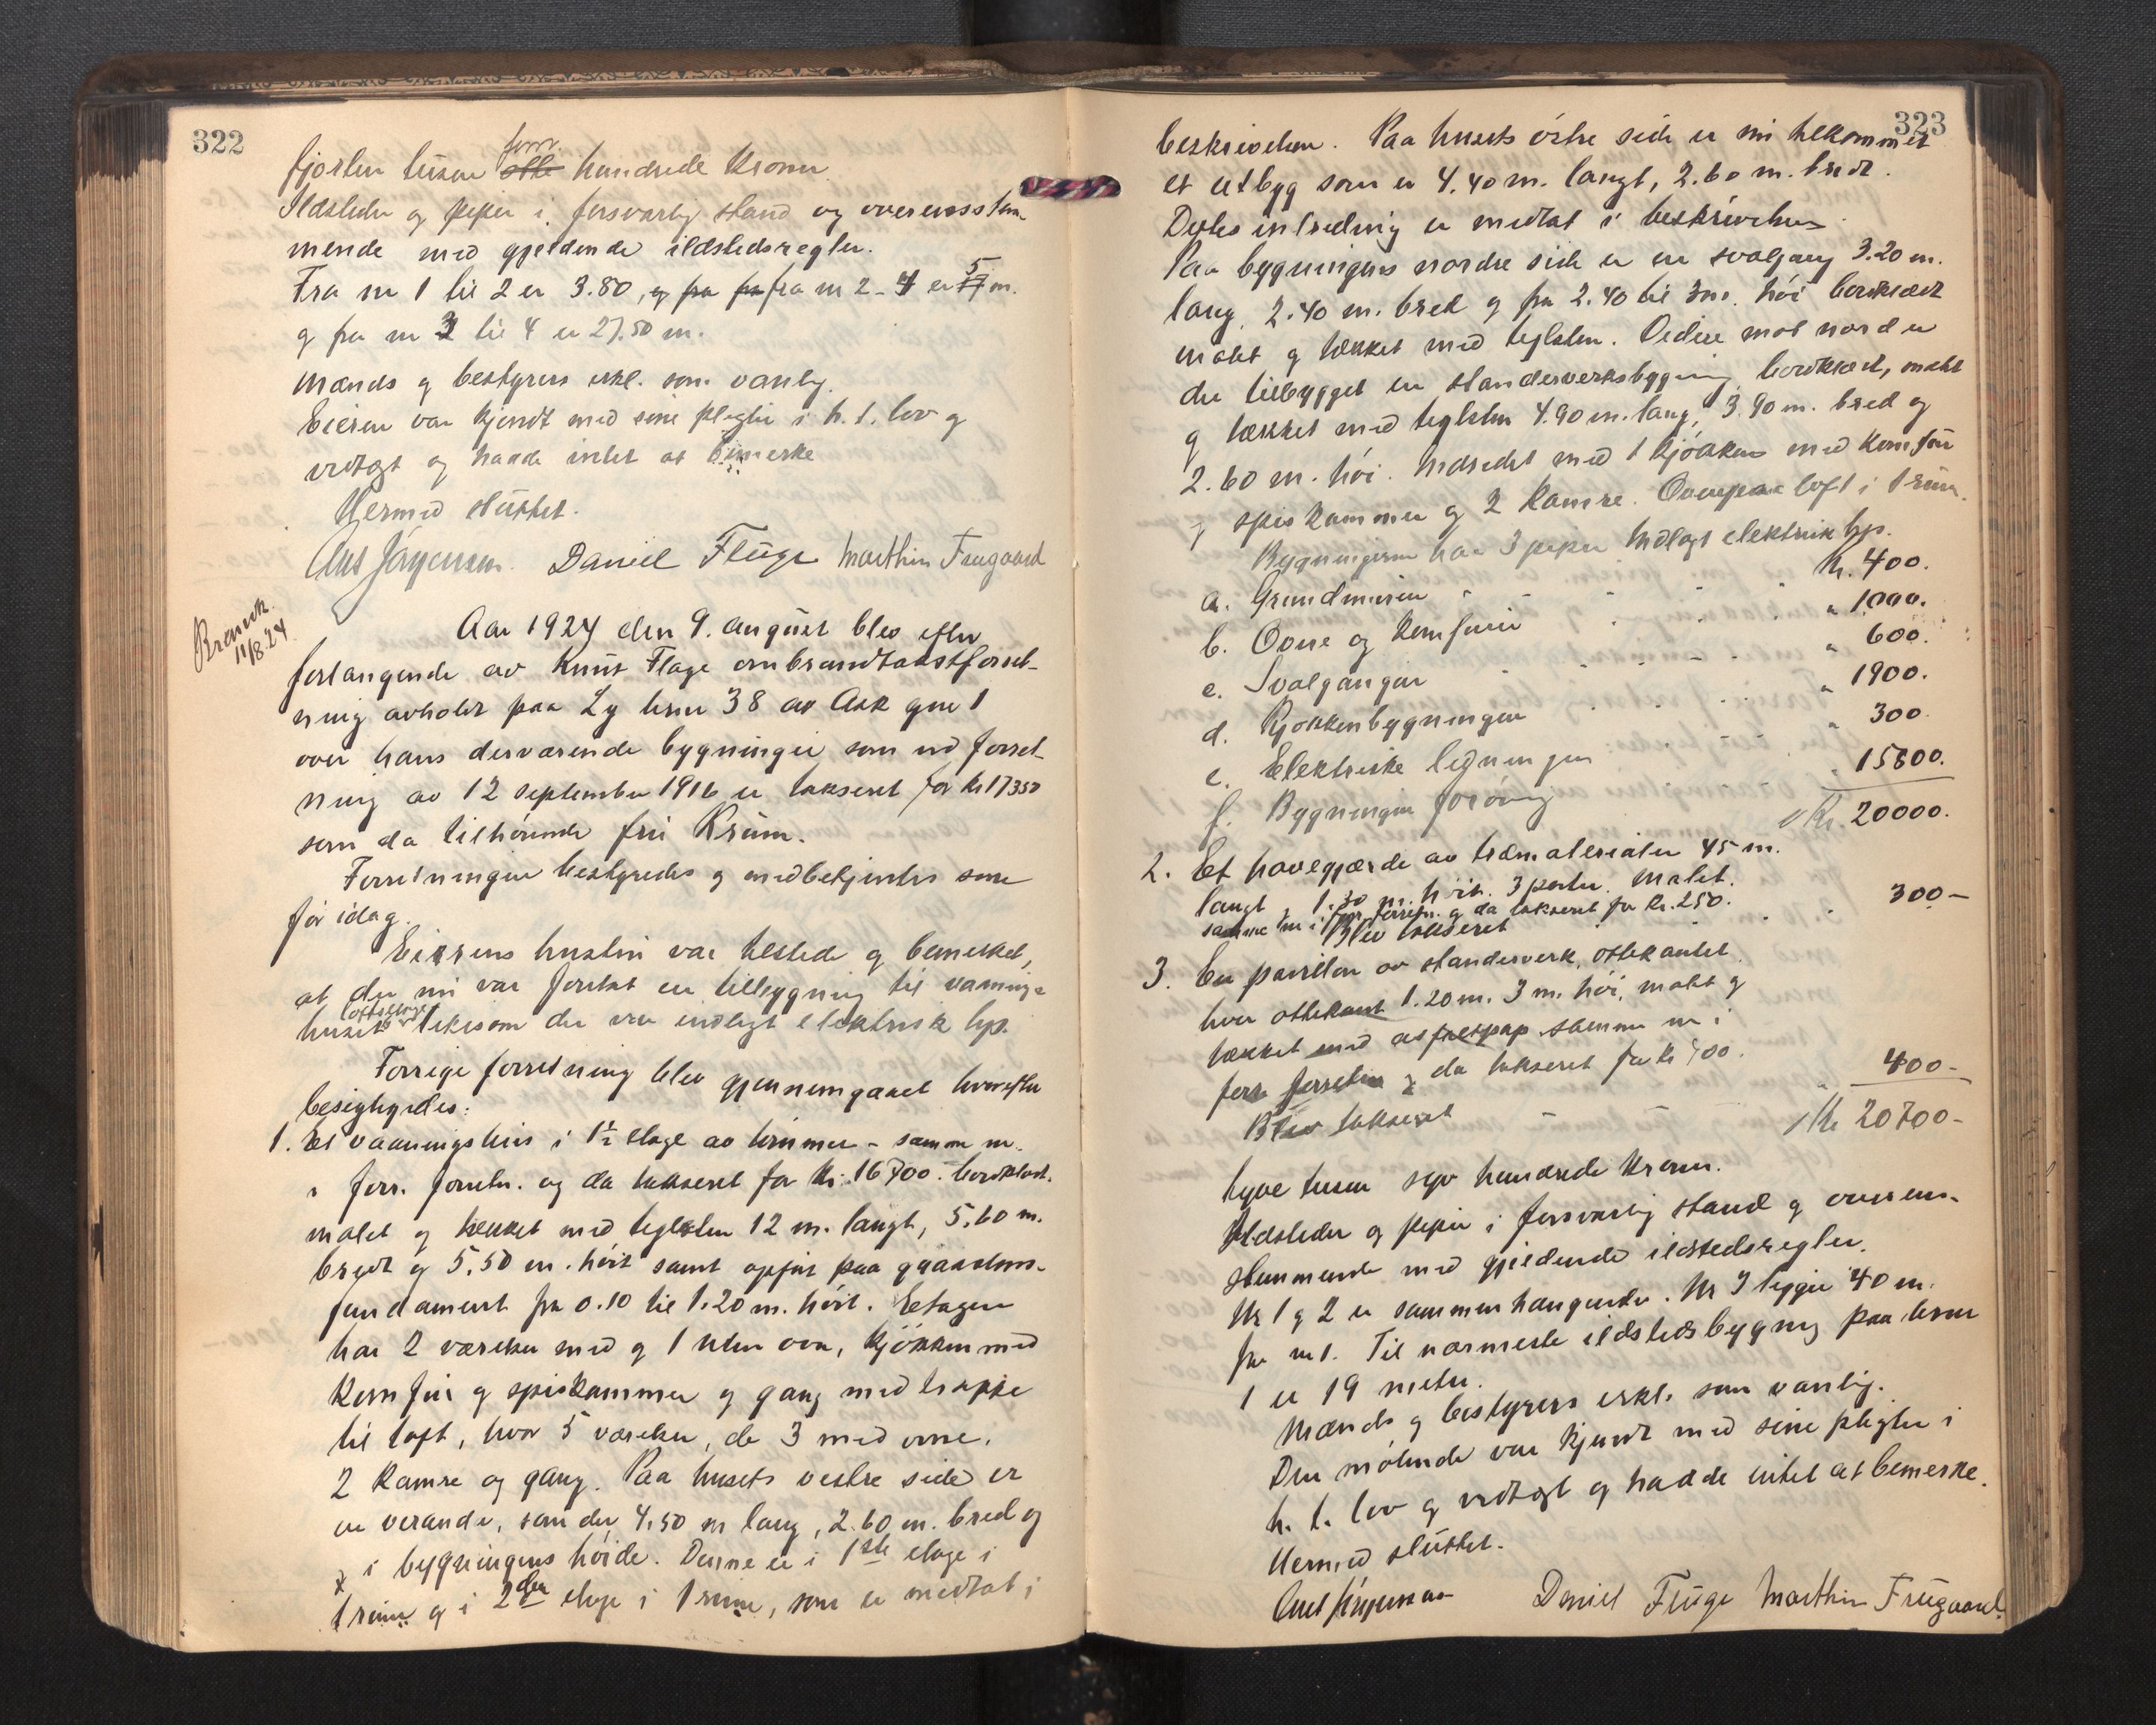 322
fjorten tusen otte firr. hundrede kroner
Ildsteder og piper i forsvarlig stand og overensstem
mende med gjeldende ildstedsregler.
Fra nr 1 til 2 er 3.80, og fra fra nr 2-4 er 5 m.
og fra nr 3 til 4 er 27.50 m.
Mænds og bestyrers erkl. som vanlig.
Eieren var kjendt med sine pligter i h. t. lov og
vedtægt og hadde intet at bemerke
Hermed sluttet.
Daniel Fluge Marthin Frugaard
Bransk.
11/8.24
Aar 1924 den 9. august blev efter
forlangende av Knut Flage ombrandtakstforret-
ning avholdt paa Ly brnr 38 av Ask gnr 1
over hans derværende bygninger som ved forret-
ning av 12 september 1916 er taksert for kr 17350
som da tilhørende fru Krum.
Forretningen bestyredes og medbetjentes som
før idag.
Eierens hustru var tilstede og bemerket,
at der nu var foretat en tilbygning til vaanings
huset likesom der var indlagt elektrisk lys.
Forrige forretning blev gjennemgaaet hvorefter
besigtigedes:
1. Et vaaningshus i 1½ etage av tømmer - samme nr.
i forr. forretn. og da taksert for kr. 16700. bordklædt.
malet og tækket med teglsten 12 m. langt, 5.60 m.
bredt og 5.50 m. høit samt opført paa graastens-
fundament fra 0.10 til 1.20 m. høit. Etagen
har 2 værelser med og 1 uten ovn, kjøkken med
komfur og spiskammer og gang med trappe
til loft, hvor 5 værelser, de 3 med ovne,
2 kamre og gang. Paa husets vestre side er
en veranda, som er 4.50 m lang, 2.60 m. bred og
i bygningens høide. Denne er i 1ste etage i
1 rum og i 2den etage i 1 rum, som er medtat i
323
beskrivelsen. Paa husets østre side er nu tilkommet
et utbygg som er 4.40 m. langt, 2.60 m. bredt.
Dettes indredning er medtat i beskrivelsen.
Paa bygningens nordre side er en svalgang 3.20 m.
lang, 2.40 m. bred og fra 2.40 til 3 m. høi bordklædt
malet og tækket med teglsten. Videre mot nord er
der tilbygget en standerverksbygning, bordklædt, malet
og tækket med teglsten 4.90 m. lang, 3.90 m. bred og
2.60 m. høi. Indredet med 1 kjøkken med komfur
og spiskammer og 2 kamre. Ovenpaa loft i 1 rum.
Bygningerne har 3 piper. Indlagt elektrisk lys.
a. Grundmuren kr. 400.
b. Ovne og komfurer " 1000.
c. Svalgangen " 600.
d. Kjøkkenbygningen " 1900.
e. Elektriske ledninger " 300.
f. Bygningen forøvrig " 15800.
Kr. 20000.
2. Et havegjærde av træmaterialer 45 m.
langt, 1.30 m. høit. 3 porter. Malet.
samme nr i forr. forretn. og da taksert for kr. 250.
Blev taksert 300-
3. En paviljon av standerverk, ottekantet
hver ottekant 1.20 m. 3 m. høi, malet og
tækket med asfaltpap samme nr i
forr forretn og da taksert for kr 400.
Blev taksert " 400-
Kr 20700-
tyve tusen syv hundrede kroner.
Ildsteder og piper i forsvarlig stand og overens-
stemmende med gjeldende ildstedsregler.
Nr 1 og 2 er sammenhængende. Nr 3 ligger 40 m.
fra nr 1. Til nærmeste ildstedsbygning paa brnr
1 er 19 meter.
Mænds og bestyrers erkl. som vanlig.
Den møtende var kjendt med sine pligter i
h. t. lov og vedtægt og hadde intet at bemerke.
Hermed sluttet.
Daniel Fluge Marthin Frugaard